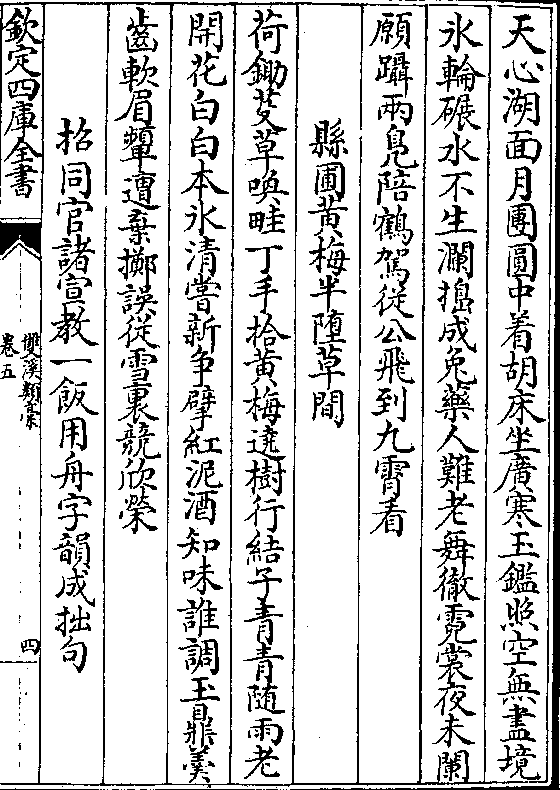 天心湖面月團圓中着胡床坐廣寒玉鑑照空無盡境
氷輪碾水不生瀾搗成兔藥人難老舞徹霓裳夜未闌
願躡兩鳬陪鶴駕從公飛到九霄看
縣圃黄梅半墮草間
荷鋤芟草喚畦丁手拾黄梅遶樹行結子青青随雨老
開花白白本氷清嘗新争擘紅泥酒知味誰調玉鼎羮
齒軟眉顰遭棄擲誤從雪裏競欣榮
招同官諸宣教一飯用舟字韻成拙句
欽定四庫全書
雙溪類稾
卷五
四